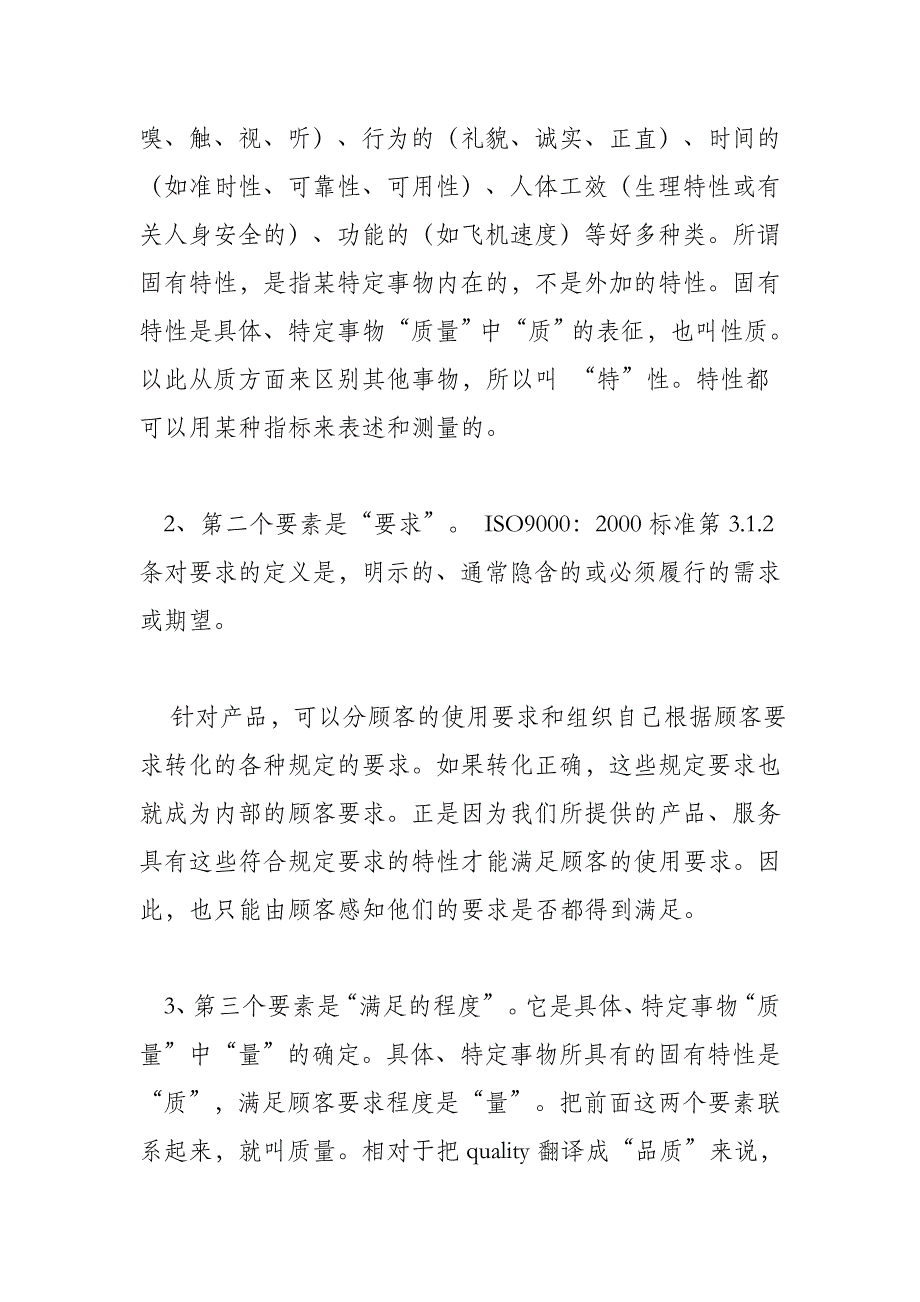 嗅、触、视、听）、行为的（礼貌、诚实、正直）、时间的
（如准时性、可靠性、可用性）、人体工效（生理特性或有
关人身安全的）、功能的（如飞机速度）等好多种类。所谓
固有特性，是指某特定事物内在的，不是外加的特性。固有
特性是具体、特定事物“质量”中“质”的表征，也叫性质。
以此从质方面来区别其他事物，所以叫 “特”性。特性都
可以用某种指标来表述和测量的。
2、第二个要素是“要求”。 ISO9000：2000 标准第 3.1.2
条对要求的定义是，明示的、通常隐含的或必须履行的需求
或期望。
针对产品，可以分顾客的使用要求和组织自己根据顾客要
求转化的各种规定的要求。如果转化正确，这些规定要求也
就成为内部的顾客要求。正是因为我们所提供的产品、服务
具有这些符合规定要求的特性才能满足顾客的使用要求。因
此，也只能由顾客感知他们的要求是否都得到满足。
3、第三个要素是“满足的程度”。它是具体、特定事物“质
量”中“量”的确定。具体、特定事物所具有的固有特性是
“质”，满足顾客要求程度是“量”。把前面这两个要素联
系起来，就叫质量。相对于把 quality 翻译成“品质”来说，